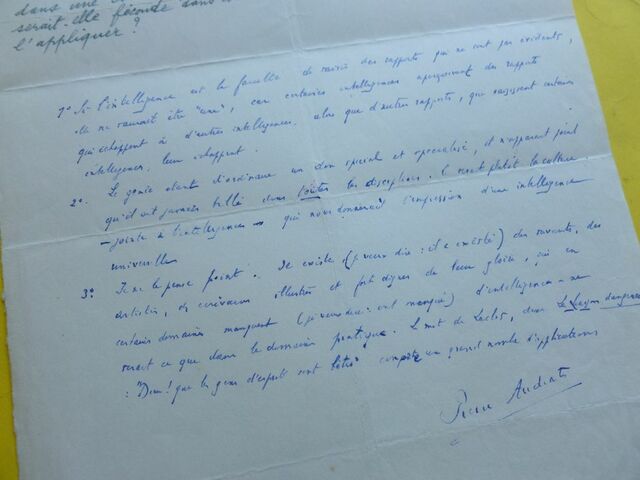 dans une
serait-elle féconde dans
l'appliquer?
1° Si l'intelligence est la faculté de saisir des rapports qui ne sont pas évidents,
elle ne saurait être "une", car certaines intelligences aperçoivent des rapports
qui échappent à d'autres intelligences, alors que d'autres rapports, que saisissent certaines
intelligences, leur échappent.
2° Le génie étant d'ordinaire un don spécial et spécialisé, il n'apparaît point
qu'il ait jamais brillé dans toutes les disciplines. Ce serait plutôt la culture
- jointe à l'intelligence - qui nous donnerait l'impression d'une intelligence
universelle
3° Je ne le pense point. Il existe (je veux dire : il a existé) des savants, des
artistes, des écrivains illustres et fort dignes de leur gloire, qui en
certains domaines manquent (je veux dire : ont manqué) d'intelligence - ne
serait ce que dans le domaine pratique. Le mot de Laclos, dans Les Liaisons dangereuses
: "Dieu! que les gens d'esprit sont bêtes" comporte un grand nombre d'applications
Pierre